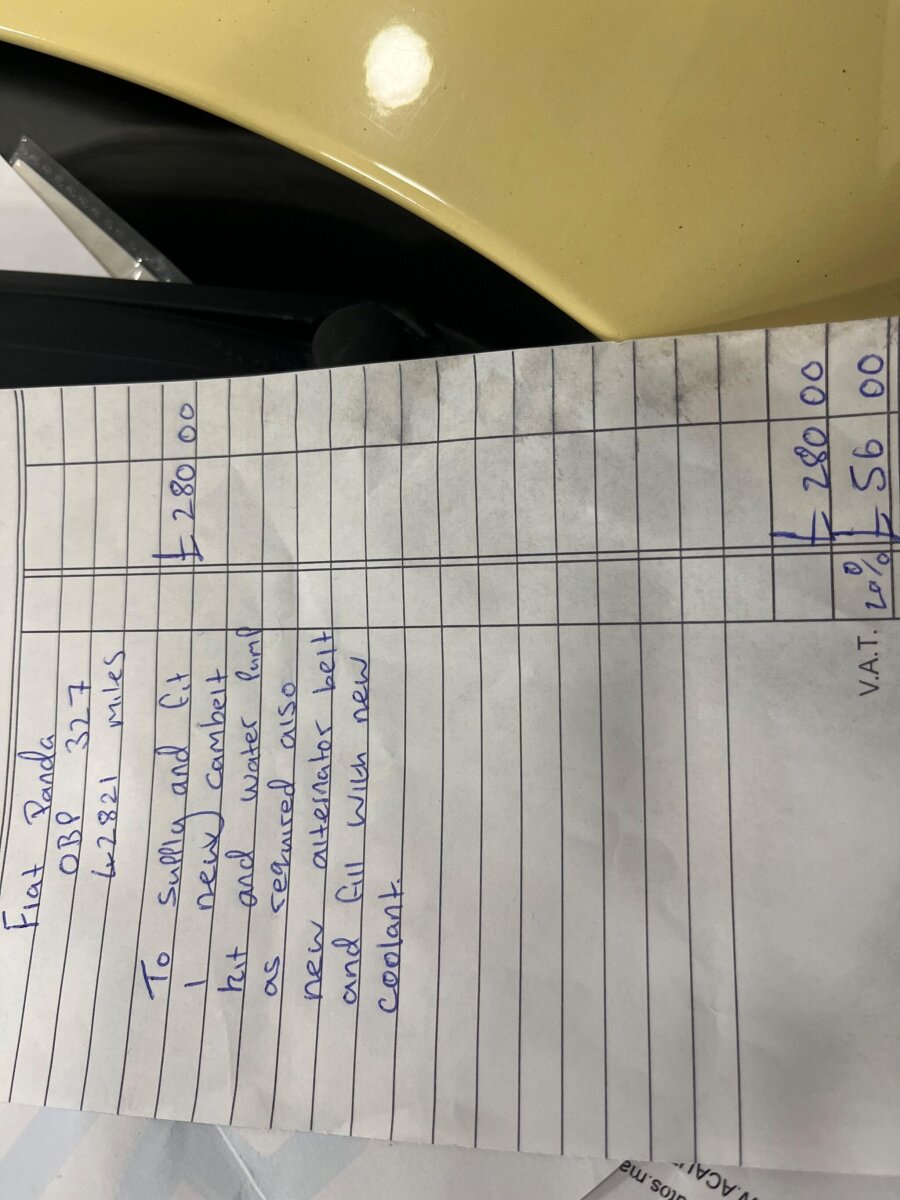 Fiat Panda
OBP 327
42821 miles
To supply and fit £280 00
1 new cambelt
kit and water pump
as required also
new alternator belt
and fill with new
coolant.
£ 280 00
V.A.T. 20% £ 56 00